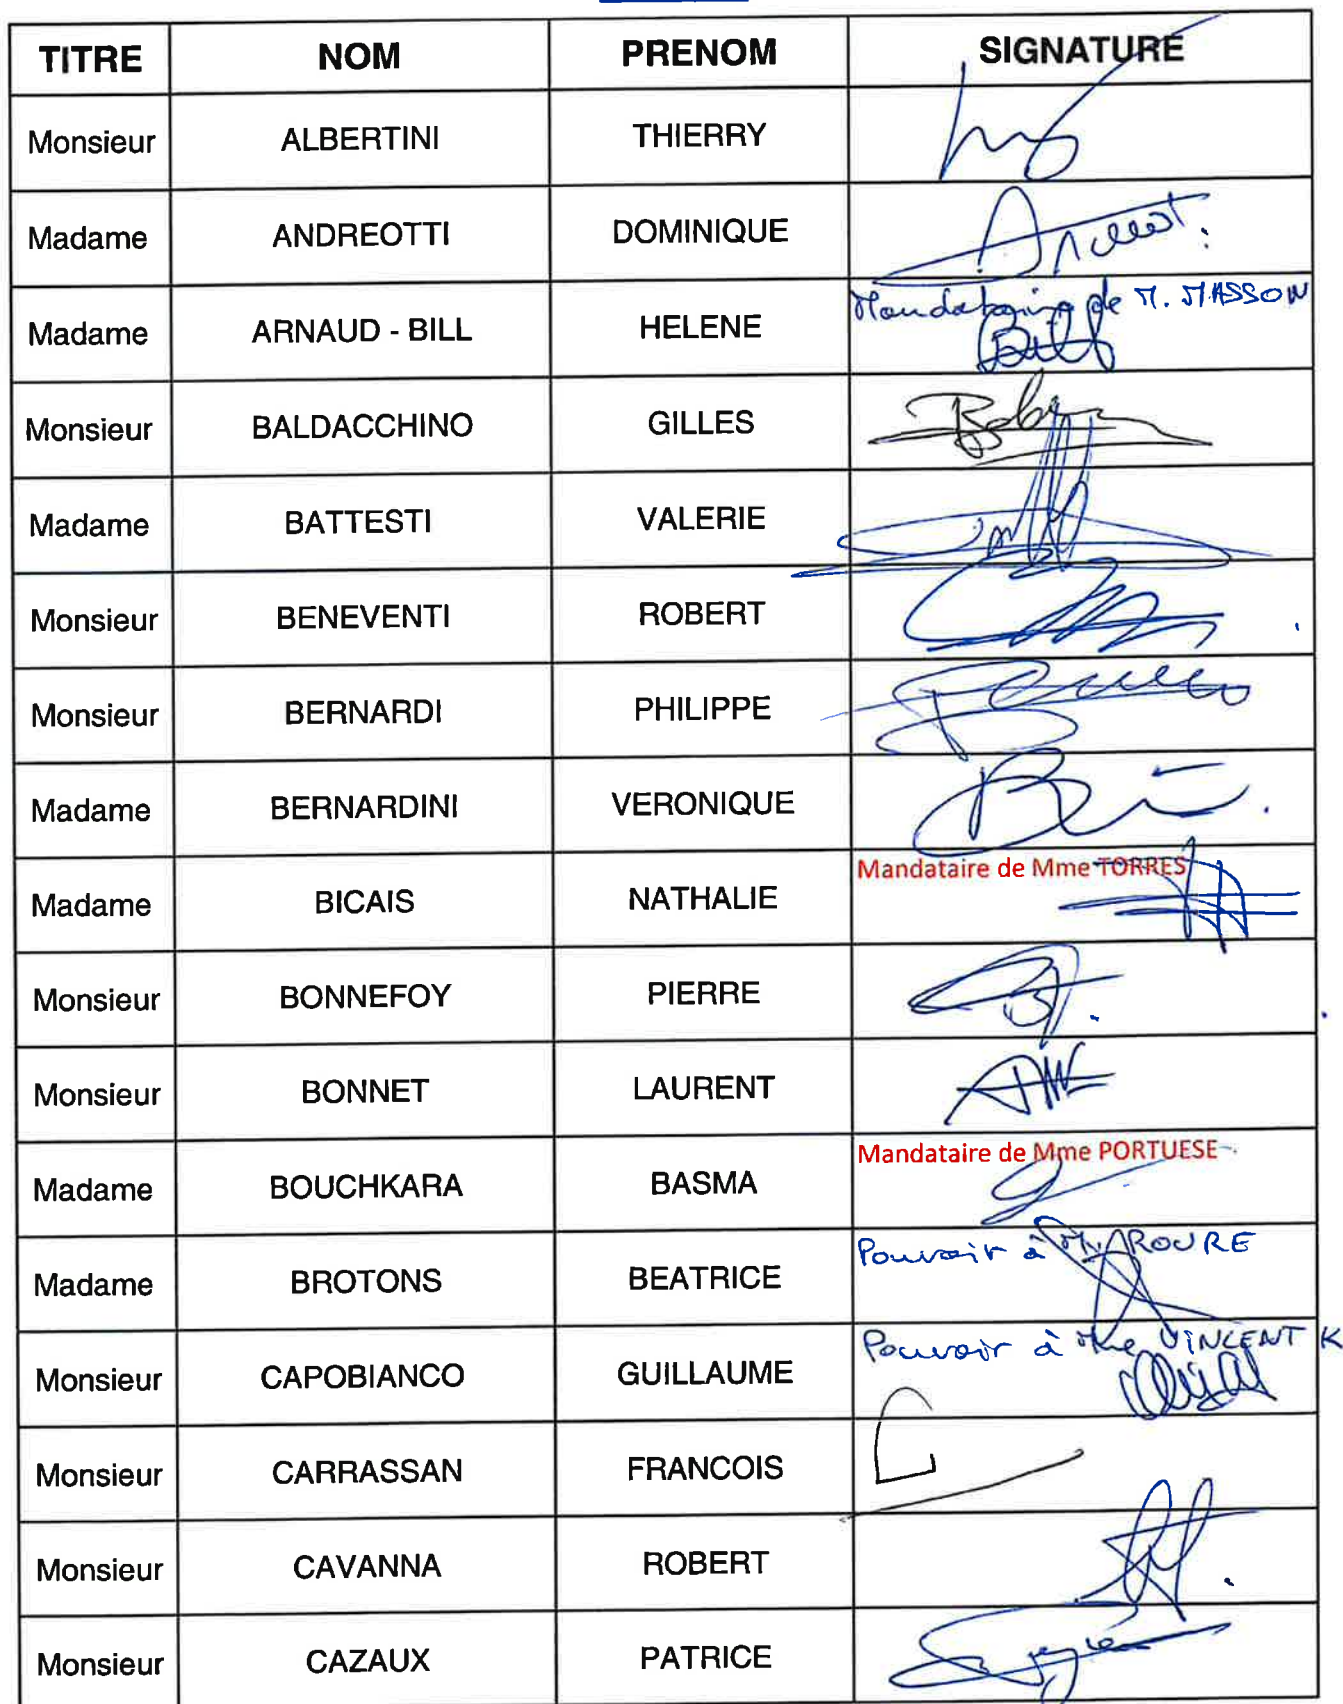 TITRE NOM PRENOM SIGNATURE
Monsieur ALBERTINI THIERRY
Madame ANDREOTTI DOMINIQUE
Madame ARNAUD - BILL HELENE Mandataire de M. MASSON
Monsieur BALDACCHINO GILLES
Madame BATTESTI VALERIE
Monsieur BENEVENTI ROBERT
Monsieur BERNARDI PHILIPPE
Madame BERNARDINI VERONIQUE
Madame BICAIS NATHALIE Mandataire de Mme TORRES
Monsieur BONNEFOY PIERRE
Monsieur BONNET LAURENT
Madame BOUCHKARA BASMA Mandataire de Mme PORTUESE
Madame BROTONS BEATRICE Pouvoir à M. ROURE
Monsieur CAPOBIANCO GUILLAUME Pouvoir à Mme VINCENT K
Monsieur CARRASSAN FRANCOIS
Monsieur CAVANNA ROBERT
Monsieur CAZAUX PATRICE